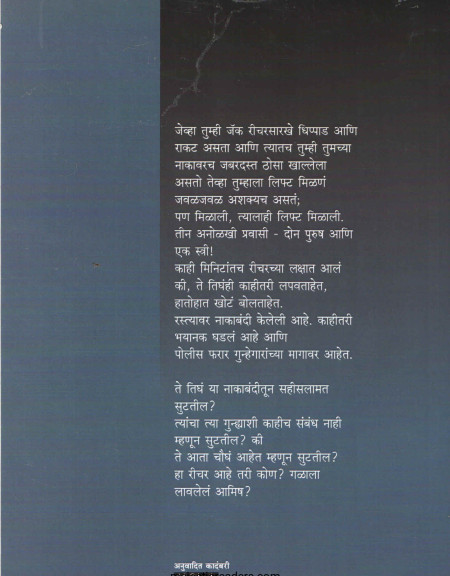 जेव्हा तुम्ही जॅक रीचरसारखे धिप्पाड आणि
राकट असता आणि त्यातच तुम्ही तुमच्या
नाकावरच जबरदस्त ठोसा खाल्लेला
असतो तेव्हा तुम्हाला लिफ्ट मिळणं
जवळजवळ अशक्यच असतं;
पण मिळाली, त्यालाही लिफ्ट मिळाली.
तीन अनोळखी प्रवासी - दोन पुरुष आणि
एक स्त्री!
काही मिनिटांतच रीचरच्या लक्षात आलं
की, ते तिघंही काहीतरी लपवताहेत,
हातोहात खोटं बोलताहेत.
रस्त्यावर नाकाबंदी केलेली आहे. काहीतरी
भयानक घडलं आहे आणि
पोलीस फरार गुन्हेगारांच्या मागावर आहेत.
ते तिघं या नाकाबंदीतून सहीसलामत
सुटतील?
त्यांचा त्या गुन्ह्याशी काहीच संबंध नाही
म्हणून सुटतील? की
ते आता चौघं आहेत म्हणून सुटतील?
हा रीचर आहे तरी कोण? गळाला
लावलेलं आमिष?
अनुवादित कादंबरी